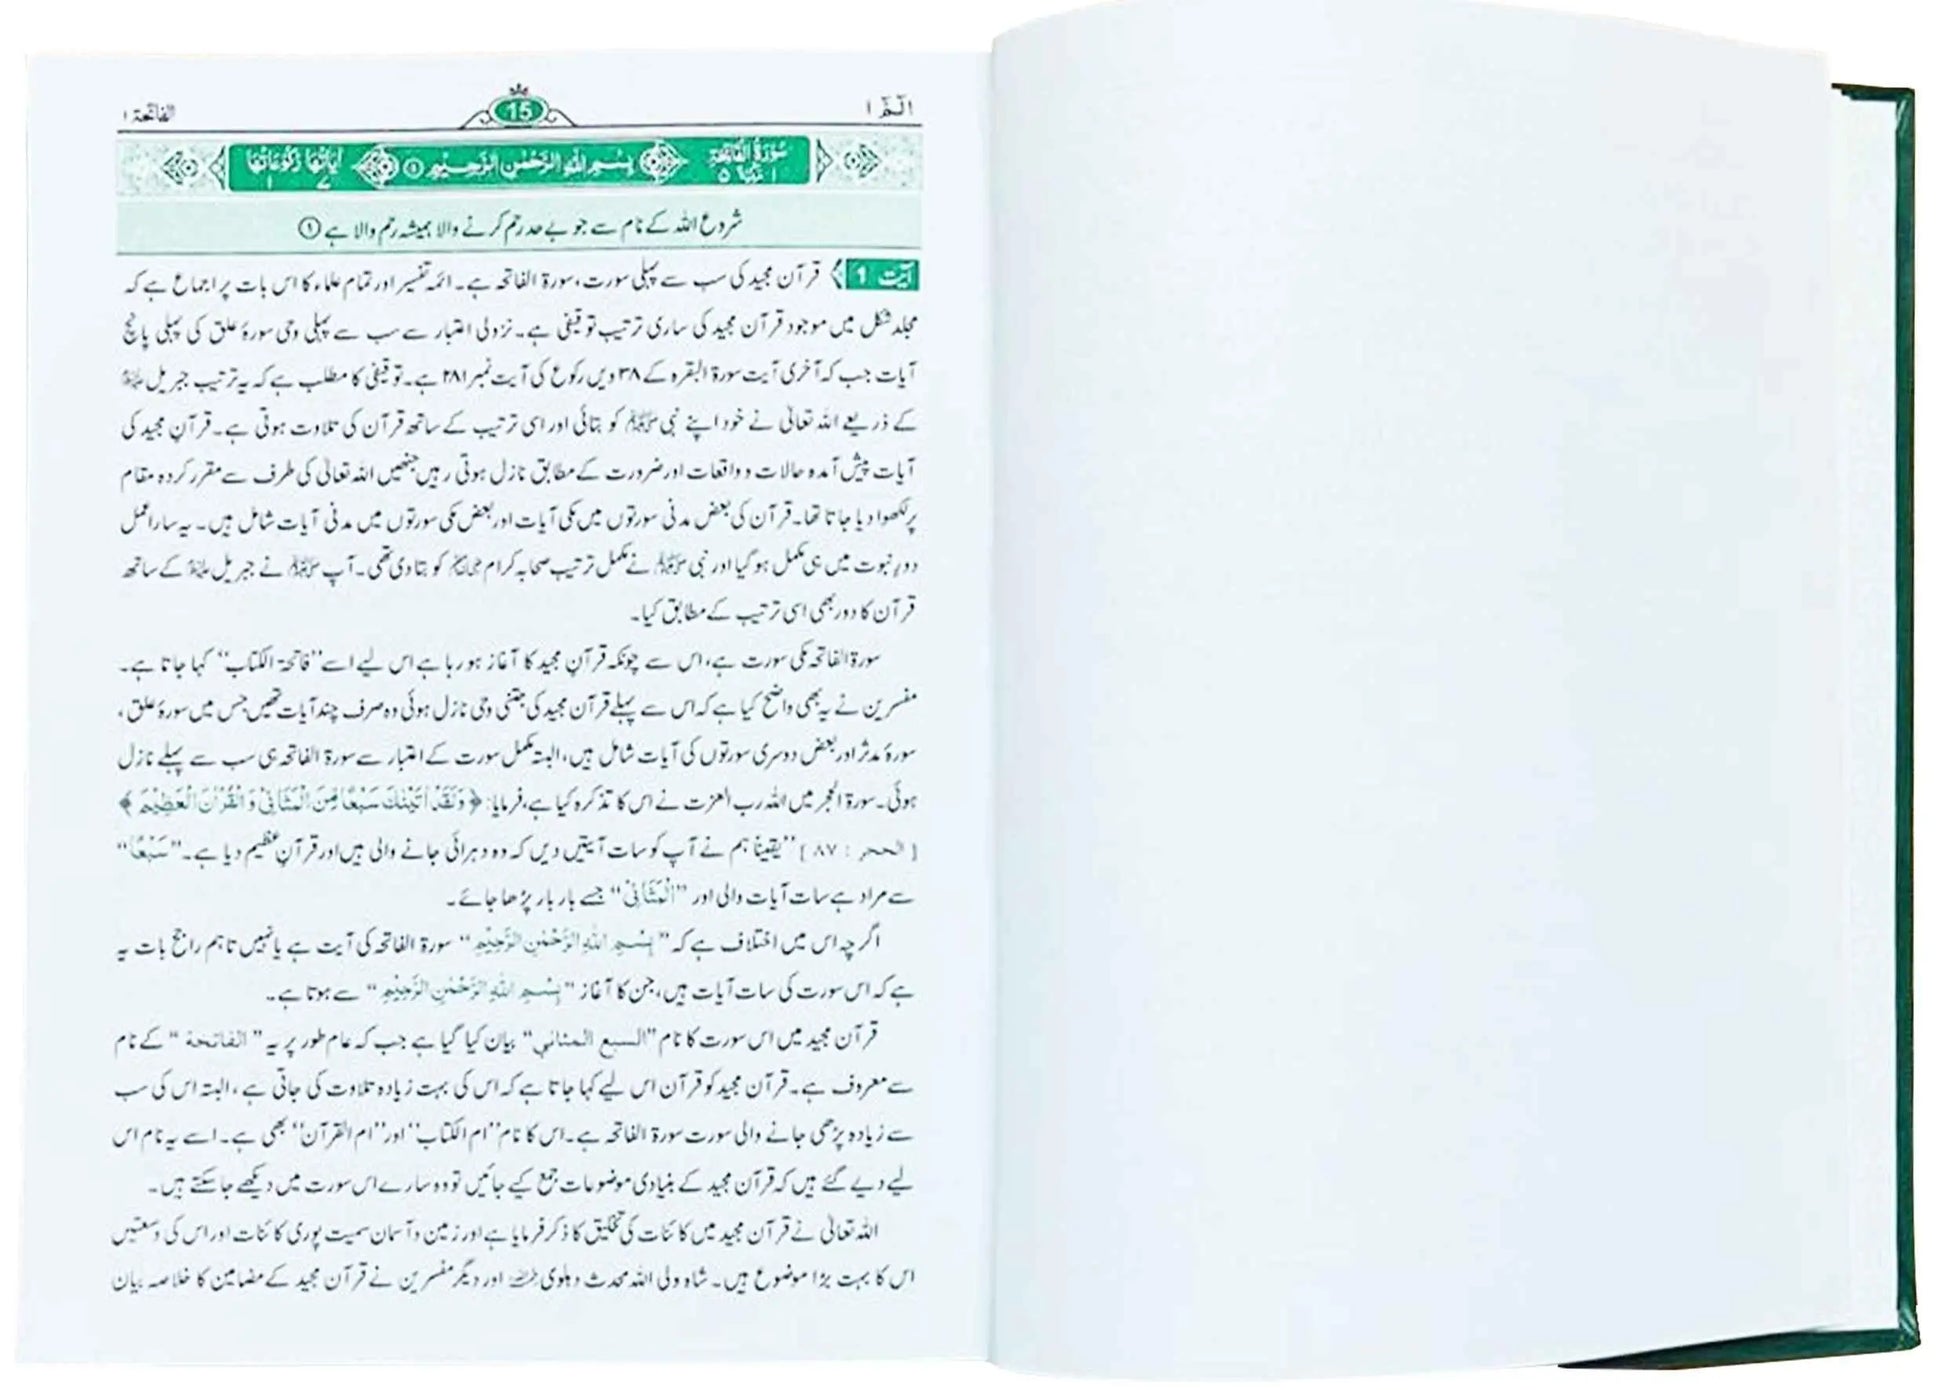 الٓمّٓ ۱
15
الفاتحۃ ۱
سُوْرَةُ الْفَاتِحَةِ
بِسْمِ اللّٰهِ الرَّحْمٰنِ الرَّحِيْمِ ①
اٰیَاتُهَا ۷ رُكُوْعَاتُهَا ۱
شروع اللہ کے نام سے جو بے حد رحم کرنے والا ہمیشہ رحم والا ہے ①
آیت 1 قرآن مجید کی سب سے پہلی سورت، سورۃ الفاتحہ ہے۔ ائمہ تفسیر اور تمام علماء کا اس بات پر اجماع ہے کہ
مجلد شکل میں موجود قرآن مجید کی ساری ترتیب توقیفی ہے۔ نزولی اعتبار سے سب سے پہلی وحی سورۂ علق کی پہلی پانچ
آیات جب کہ آخری آیت سورۃ البقرہ کے ۳۸ ویں رکوع کی آیت نمبر ۲۸۱ ہے۔ توقیفی کا مطلب ہے کہ یہ ترتیب جبریل علیہ السلام
کے ذریعے اللہ تعالیٰ نے خود اپنے نبی ﷺ کو بتائی اور اسی ترتیب کے ساتھ قرآن کی تلاوت ہوتی ہے۔ قرآنِ مجید کی
آیات پیش آمدہ حالات و واقعات اور ضرورت کے مطابق نازل ہوتی رہیں جنھیں اللہ تعالیٰ کی طرف سے مقرر کردہ مقام
پر لکھوا دیا جاتا تھا۔ قرآن کی بعض مدنی سورتوں میں مکی آیات اور بعض مکی سورتوں میں مدنی آیات شامل ہیں۔ یہ سارا عمل
دورِ نبوت میں ہی مکمل ہو گیا اور نبی ﷺ نے مکمل ترتیب صحابہ کرام کو بتا دی تھی۔ آپ ﷺ نے جبریل علیہ السلام کے ساتھ
قرآن کا دور بھی اسی ترتیب کے مطابق کیا۔
سورۃ الفاتحہ مکی سورت ہے، اس سے چونکہ قرآنِ مجید کا آغاز ہو رہا ہے اس لیے اسے ”فاتحۃ الکتاب“ کہا جاتا ہے۔
مفسرین نے یہ بھی واضح کیا ہے کہ اس سے پہلے قرآن مجید کی جتنی وحی نازل ہوئی وہ صرف چند آیات تھیں جس میں سورۂ علق،
سورۂ مدثر اور بعض دوسری سورتوں کی آیات شامل ہیں، البتہ مکمل سورت کے اعتبار سے سورۃ الفاتحہ ہی سب سے پہلے نازل
ہوئی۔ سورۃ الحجر میں اللہ رب العزت نے اس کا تذکرہ کیا ہے، فرمایا: ﴿وَلَقَدْ اٰتَيْنٰكَ سَبْعًا مِّنَ الْمَثَانِيْ وَالْقُرْاٰنَ الْعَظِيْمَ﴾
[الحجر : ۸۷] ”یقیناً ہم نے آپ کو سات آیتیں دیں کہ وہ دہرائی جانے والی ہیں اور قرآنِ عظیم دیا ہے۔ ”سَبْعًا“
سے مراد ہے سات آیات والی اور ”الْمَثَانِيْ“ جسے بار بار پڑھا جائے۔
اگرچہ اس میں اختلاف ہے کہ ”بِسْمِ اللّٰهِ الرَّحْمٰنِ الرَّحِيْمِ“ سورۃ الفاتحہ کی آیت ہے یا نہیں تاہم راجح بات یہ
ہے کہ اس سورت کی سات آیات ہیں، جن کا آغاز ”بِسْمِ اللّٰهِ الرَّحْمٰنِ الرَّحِيْمِ“ سے ہوتا ہے۔
قرآن مجید میں اس سورت کا نام ”السبع المثاني“ بیان کیا گیا ہے جب کہ عام طور پر یہ ”الفاتحة“ کے نام
سے معروف ہے۔ قرآن مجید کو قرآن اس لیے کہا جاتا ہے کہ اس کی بہت زیادہ تلاوت کی جاتی ہے، البتہ اس کی سب
سے زیادہ پڑھی جانے والی سورت سورۃ الفاتحہ ہے۔ اس کا نام ”ام الکتاب“ اور ”ام القرآن“ بھی ہے۔ اسے یہ نام اس
لیے دیے گئے ہیں کہ قرآن مجید کے بنیادی موضوعات جمع کیے جائیں تو وہ سارے اس سورت میں دیکھے جا سکتے ہیں۔
اللہ تعالیٰ نے قرآن مجید میں کائنات کی تخلیق کا ذکر فرمایا ہے اور زمین و آسمان سمیت پوری کائنات اور اس کی وسعتیں
اس کا بہت بڑا موضوع ہیں۔ شاہ ولی اللہ محدث دہلوی اور دیگر مفسرین نے قرآن مجید کے مضامین کا خلاصہ بیان